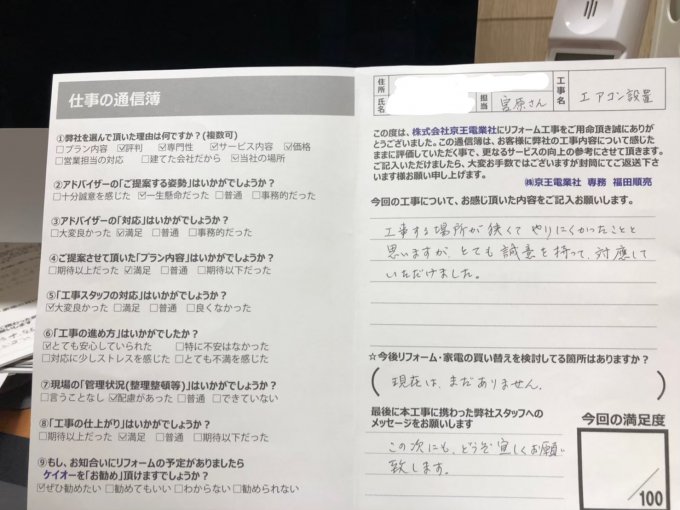 仕事の通信簿
①弊社を選んで頂いた理由は何ですか?(複数可)
□プラン内容 ☑評判 ☑専門性 ☑サービス内容 ☑価格
□営業担当の対応 □建てた会社だから ☑当社の場所
②アドバイザーの「ご提案する姿勢」はいかがでしょうか?
□十分誠意を感じた ☑一生懸命だった □普通 □事務的だった
③アドバイザーの「対応」はいかがでしょうか?
□大変良かった ☑満足 □普通 □事務的だった
④ご提案させて頂いた「プラン内容」はいかがでしょうか?
□期待以上だった ☑満足 □普通 □期待以下だった
⑤「工事スタッフの対応」はいかがでしょうか?
☑大変良かった □満足 □普通 □良くなかった
⑥「工事の進め方」はいかがでしたか?
☑とても安心していられた □特に不安はなかった
□対応に少しストレスを感じた □とても不満を感じた
⑦現場の「管理状況(整理整頓等)」はいかがでしょうか?
□言うことなし ☑配慮があった □普通 □できていない
⑧「工事の仕上がり」はいかがでしょうか?
□期待以上だった ☑満足 □普通 □期待以下だった
⑨もし、お知合いにリフォームの予定がありましたら
ケイオーを「お勧め」頂けますでしょうか?
☑ぜひ勧めたい □勧めてもいい □わからない □勧められない
住所
氏名
担当
宮原さん
工事名
エアコン設置
この度は、株式会社京王電業社にリフォーム工事をご用命頂き誠にありが
とうございました。この通信簿は、お客様に弊社の工事内容について感じた
ままに評価していただく事で、更なるサービスの向上の参考にさせて頂きます。
ご記入いただけましたら、大変お手数ではございますが封筒にてご返送下さ
います様お願い申し上げます。
㈱京王電業社 専務 福田順亮
今回の工事について、お感じ頂いた内容をご記入お願いします。
工事する場所が狭くてやりにくかったことと
思いますが、とても誠意を持って、対應して
いただけました。
☆今後リフォーム・家電の買い替えを検討してる箇所はありますか?
(現在は、まだありません。)
最後に本工事に携わった弊社スタッフへの
メッセージをお願いします
この次にも、どうぞ宜しくお願い
致します。
今回の満足度
/100